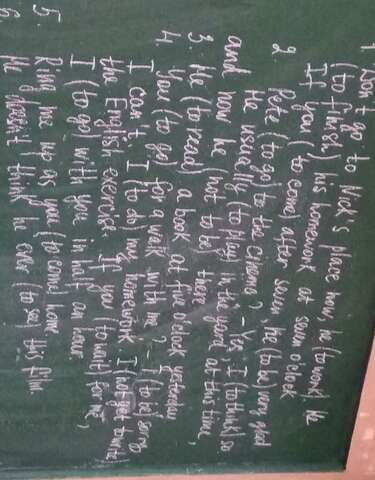 1 Don't go to Nick's place now, he (to work) He
(to finish) his homework at seven o'clock
If you (to come) after seven he (to be) very good
2. Pete (to go) to the cinema? – Yes I (to think) so
He usually (to play) in the yard at this time,
and now he not to be there
3. He (to read) a book at five o'clock yesterday
4. You (to go) for a walk with me? – I (to be) sorry
I can't. I (to do) my homework I (not to write)
the English exercise. If you (to wait) for me,
I (to go) with you in half an hour
5. Ring me up as you (to come) home
6 He think he ever (to see) this film.